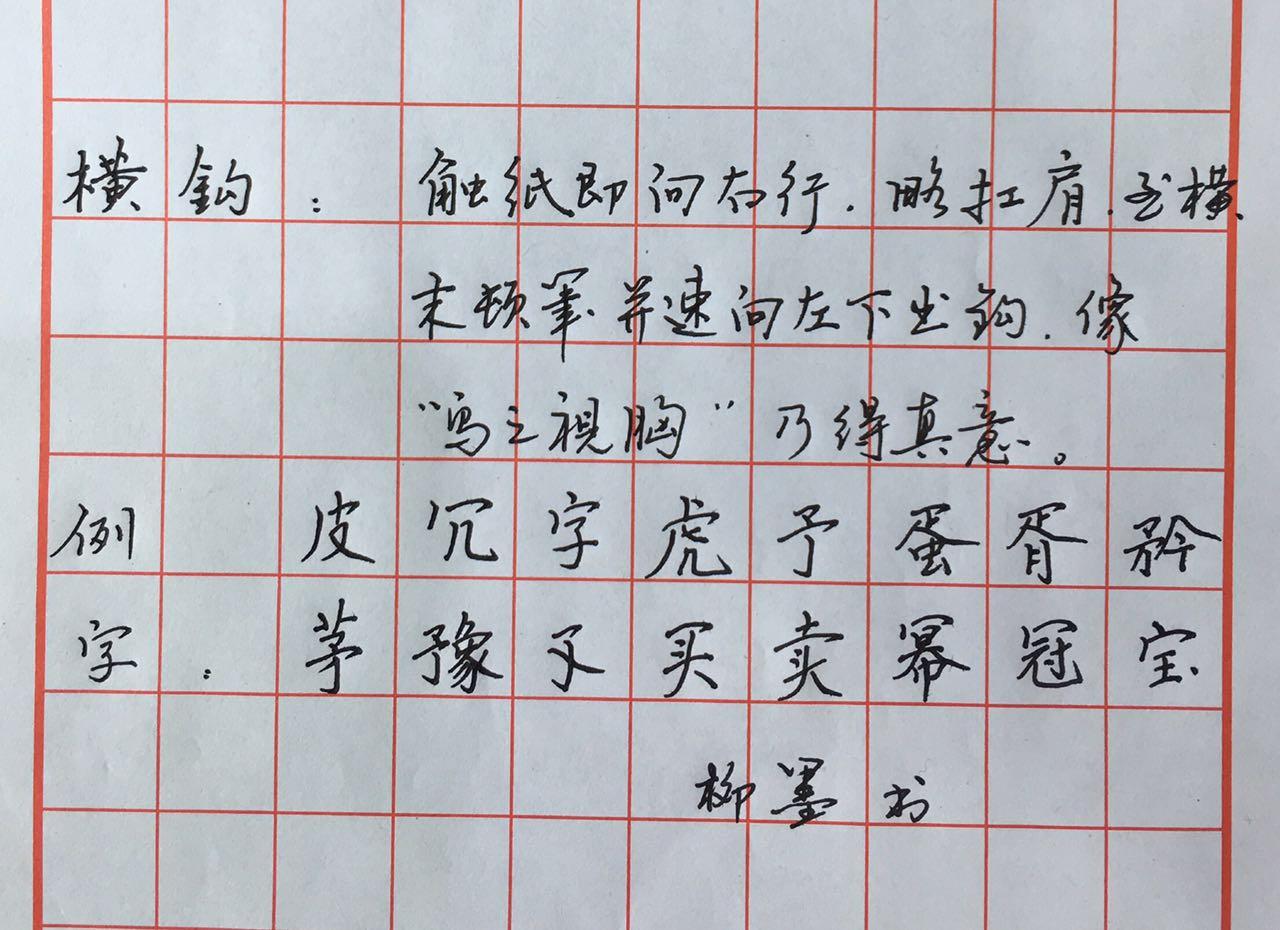 横钩：触纸即向右行.略扛肩.至横
末顿筆.并速向左下出钩.像
“鸟之視胸”乃得真意。
例 皮冗字虎予蛋胥矜
字：茅豫又买卖幂冠宝
柳墨书